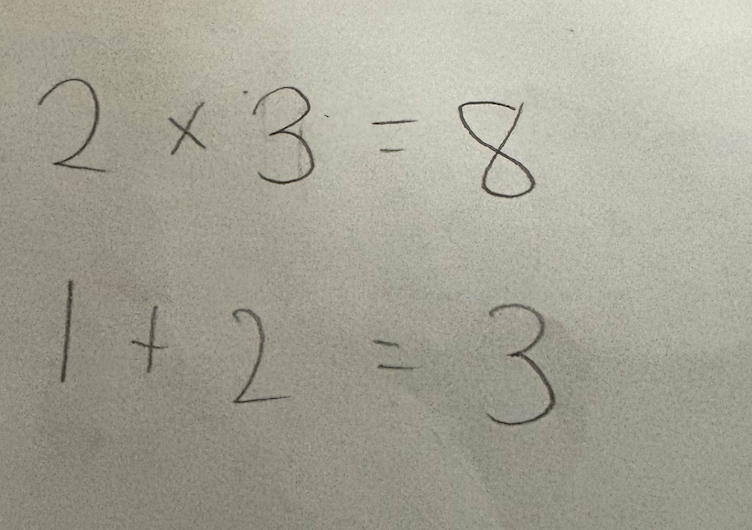 2 × 3 = 8
1 + 2 = 3